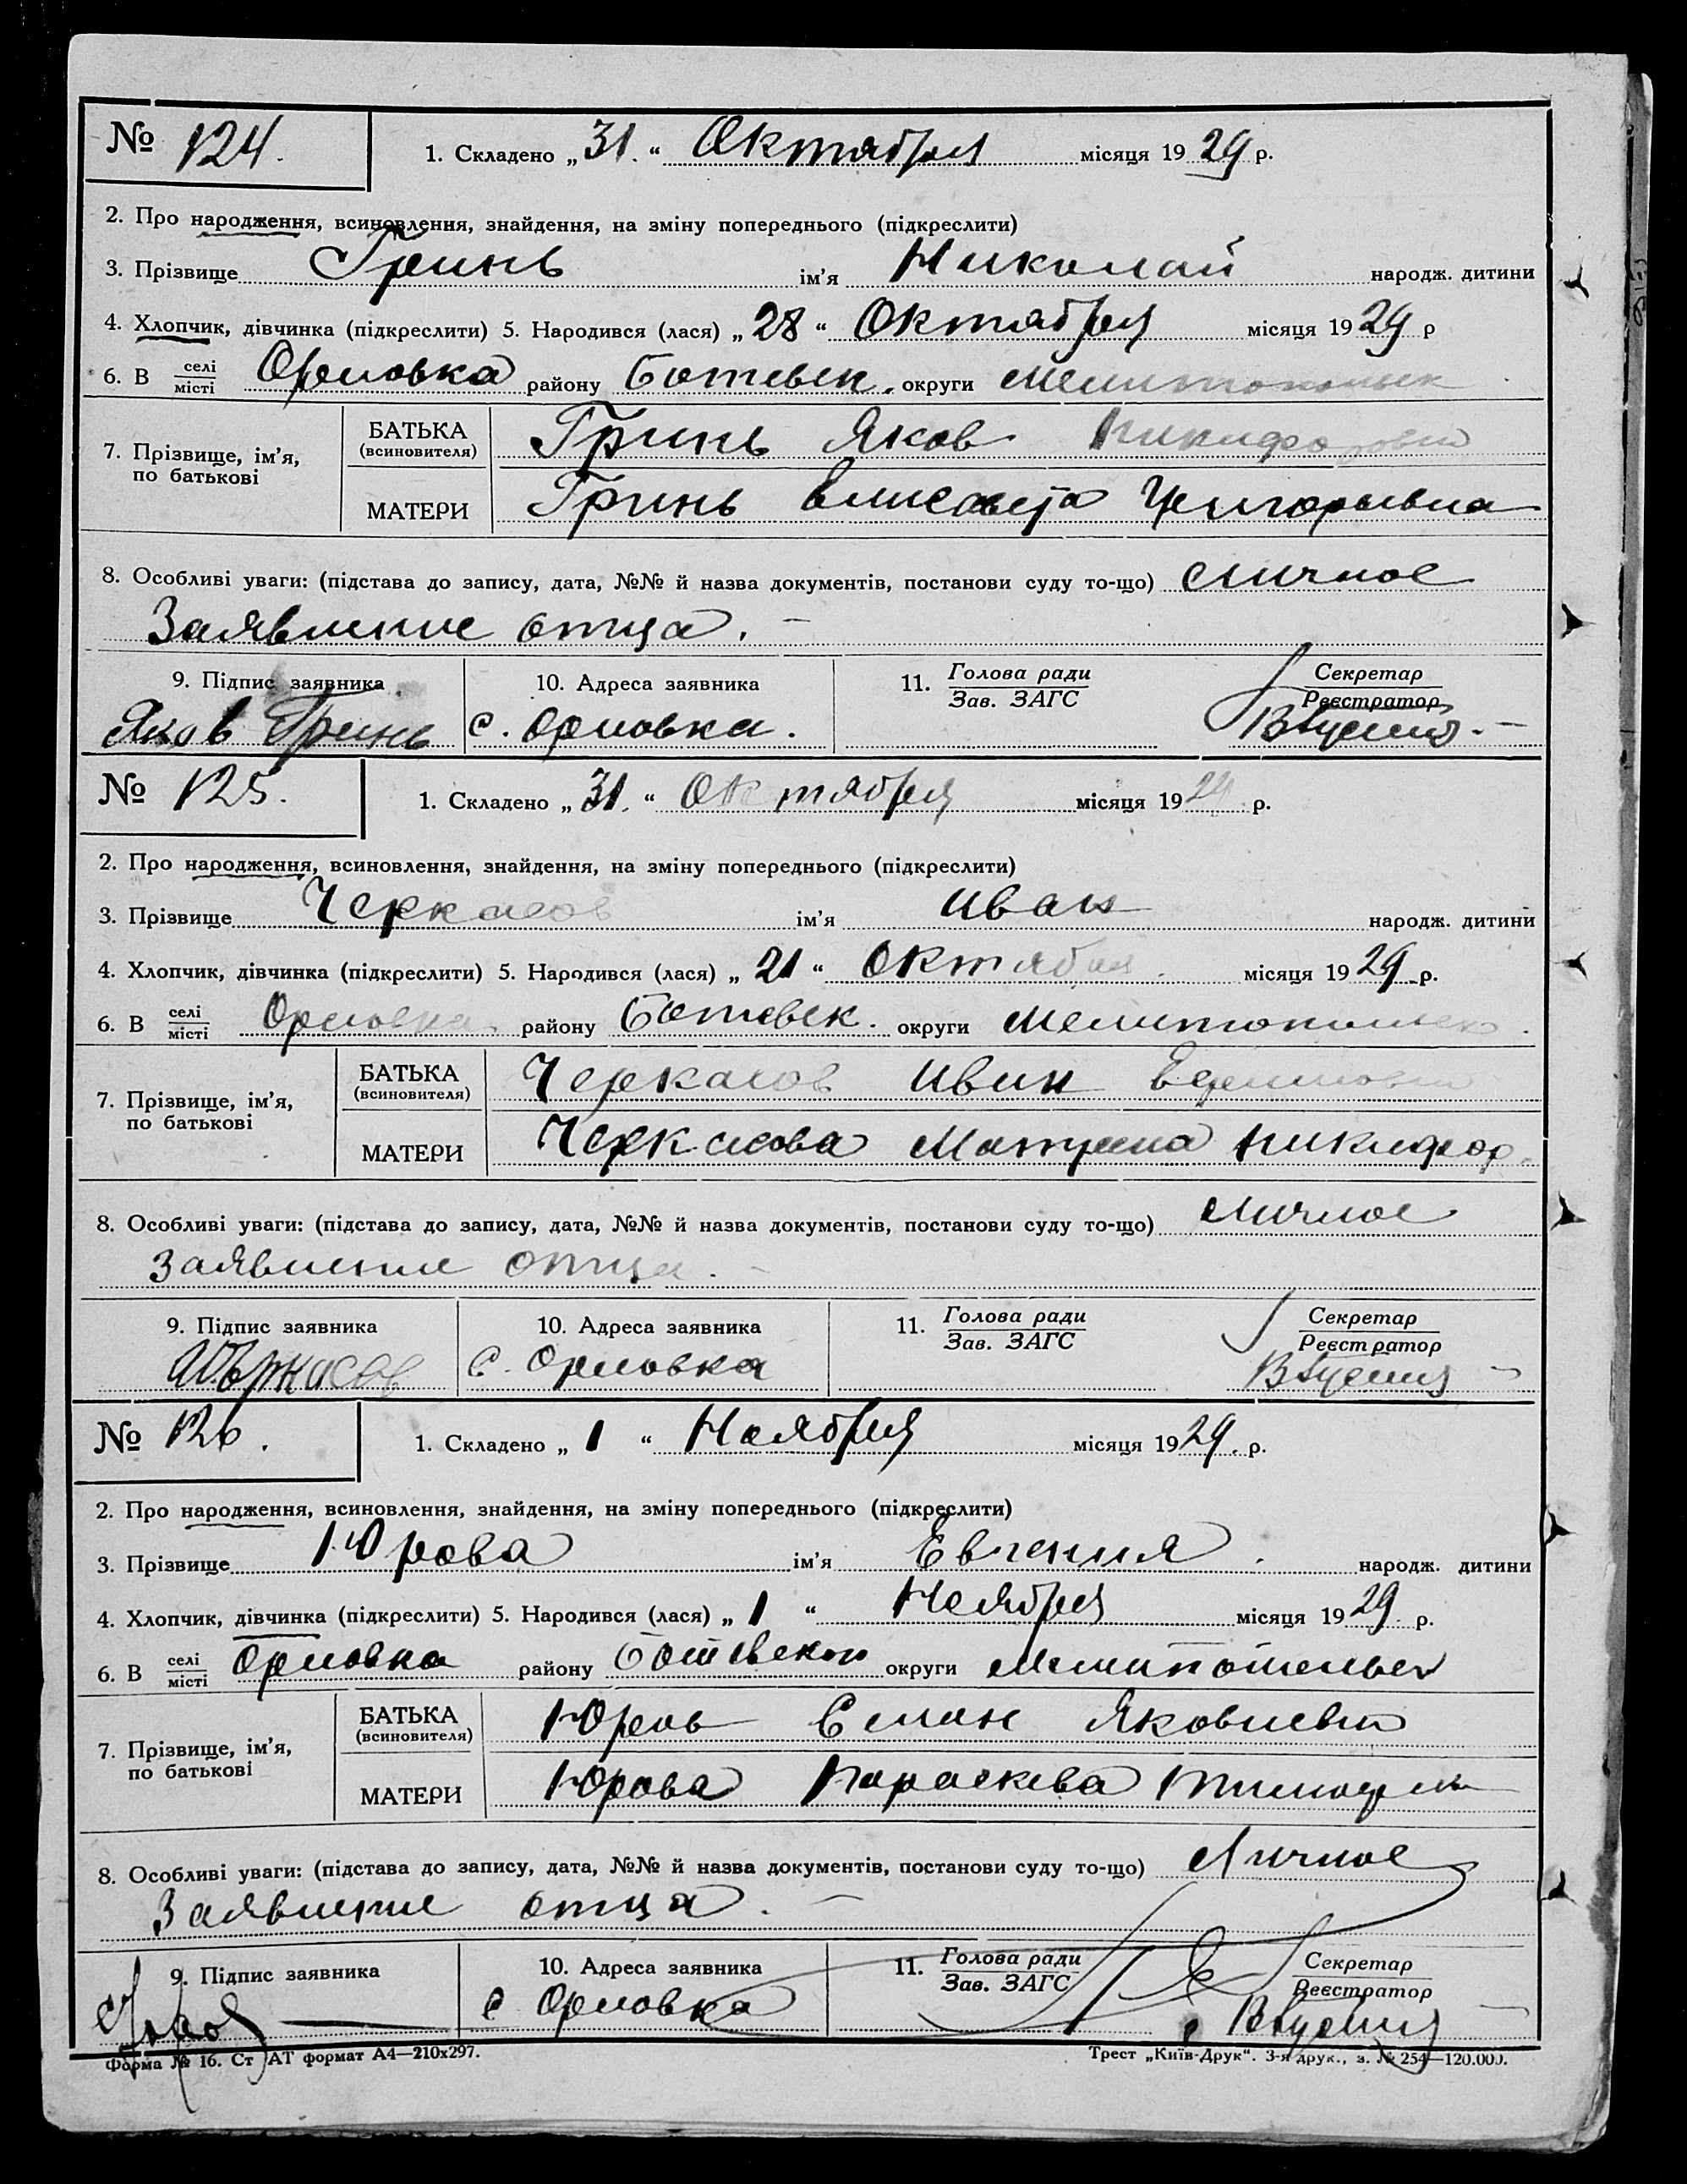 № 124. 1. Складено „31.“ Октября місяця 1929 р.
2. Про народження, всиновлення, знайдення, на зміну попереднього (підкреслити)
3. Прізвище Гринь ім'я Николай народж. дитини
4. Хлопчик, дівчинка (підкреслити) 5. Народився (лася) „28“ Октября місяця 1929 р
6. В селі/місті Орловка району Ботевск. округи Мелитопольск
7. Прізвище, ім'я, по батькові
БАТЬКА (всиновителя) Гринь Яков Никифорович
МАТЕРИ Гринь Елисавета Григорьевна
8. Особливі уваги: (підстава до запису, дата, №№ й назва документів, постанови суду то-що) личное
Заявление отца. –
9. Підпис заявника 10. Адреса заявника 11. Голова ради/Зав. ЗАГС Секретар/Реєстратор
Яков Гринь с. Орловка.
№ 125. 1. Складено „31.“ Октября місяця 1929 р.
2. Про народження, всиновлення, знайдення, на зміну попереднього (підкреслити)
3. Прізвище Черкасов ім'я Иван народж. дитини
4. Хлопчик, дівчинка (підкреслити) 5. Народився (лася) „21“ Октября місяця 1929 р.
6. В селі/місті Орловка району Ботевск. округи Мелитопольск.
7. Прізвище, ім'я, по батькові
БАТЬКА (всиновителя) Черкасов Иван
МАТЕРИ Черкасова Матрена Никифор.
8. Особливі уваги: (підстава до запису, дата, №№ й назва документів, постанови суду то-що) личное
Заявление отца. –
9. Підпис заявника 10. Адреса заявника 11. Голова ради/Зав. ЗАГС Секретар/Реєстратор
с. Орловка
№ 126. 1. Складено „1“ Ноября місяця 1929. р.
2. Про народження, всиновлення, знайдення, на зміну попереднього (підкреслити)
3. Прізвище Юрова ім'я Евгения народж. дитини
4. Хлопчик, дівчинка (підкреслити) 5. Народився (лася) „1“ Ноября місяця 1929 р.
6. В селі/місті Орловка району округи
7. Прізвище, ім'я, по батькові
БАТЬКА (всиновителя) Юров Яковлевич
МАТЕРИ Юрова Параскева
8. Особливі уваги: (підстава до запису, дата, №№ й назва документів, постанови суду то-що) Личное
Заявление отца. –
9. Підпис заявника 10. Адреса заявника 11. Голова ради/Зав. ЗАГС Секретар/Реєстратор
с Орловка
Форма № 16. Ст АТ формат А4—210х297. Трест „Київ-Друк“. 3-я друк., з. № 254—120.000.